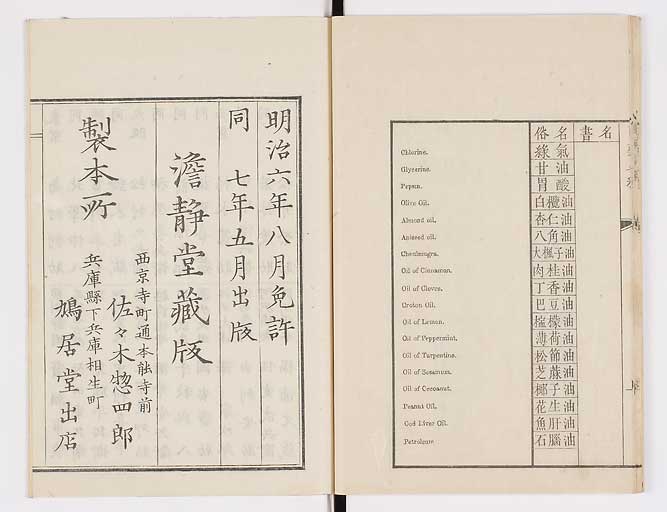 俗名 書名
Chlorine. 綠氣
Glycerine. 甘油
Pepsin. 胃酸
Olive Oil. 白欖油
Almond oil. 杏仁油
Aniseed oil. 八角油
Chaulmugra. 大楓子油
Oil of Cinnamon. 肉桂油
Oil of Cloves. 丁香油
Croton Oil. 巴豆油
Oil of Lemon. 檸檬油
Oil of Peppermint. 薄荷油
Oil of Turpentine. 松節油
Oil of Sesamum. 芝蔴油
Oil of Cocoanut. 椰子油
Peanut Oil. 花生油
Cod Liver Oil. 魚肝油
Petroleum 石腦油
明治六年八月免許
同 七年五月出版
澹靜堂藏版
製本所
西京寺町通本能寺前
佐々木惣四郎
兵庫縣下兵庫相生町
鳩居堂出店